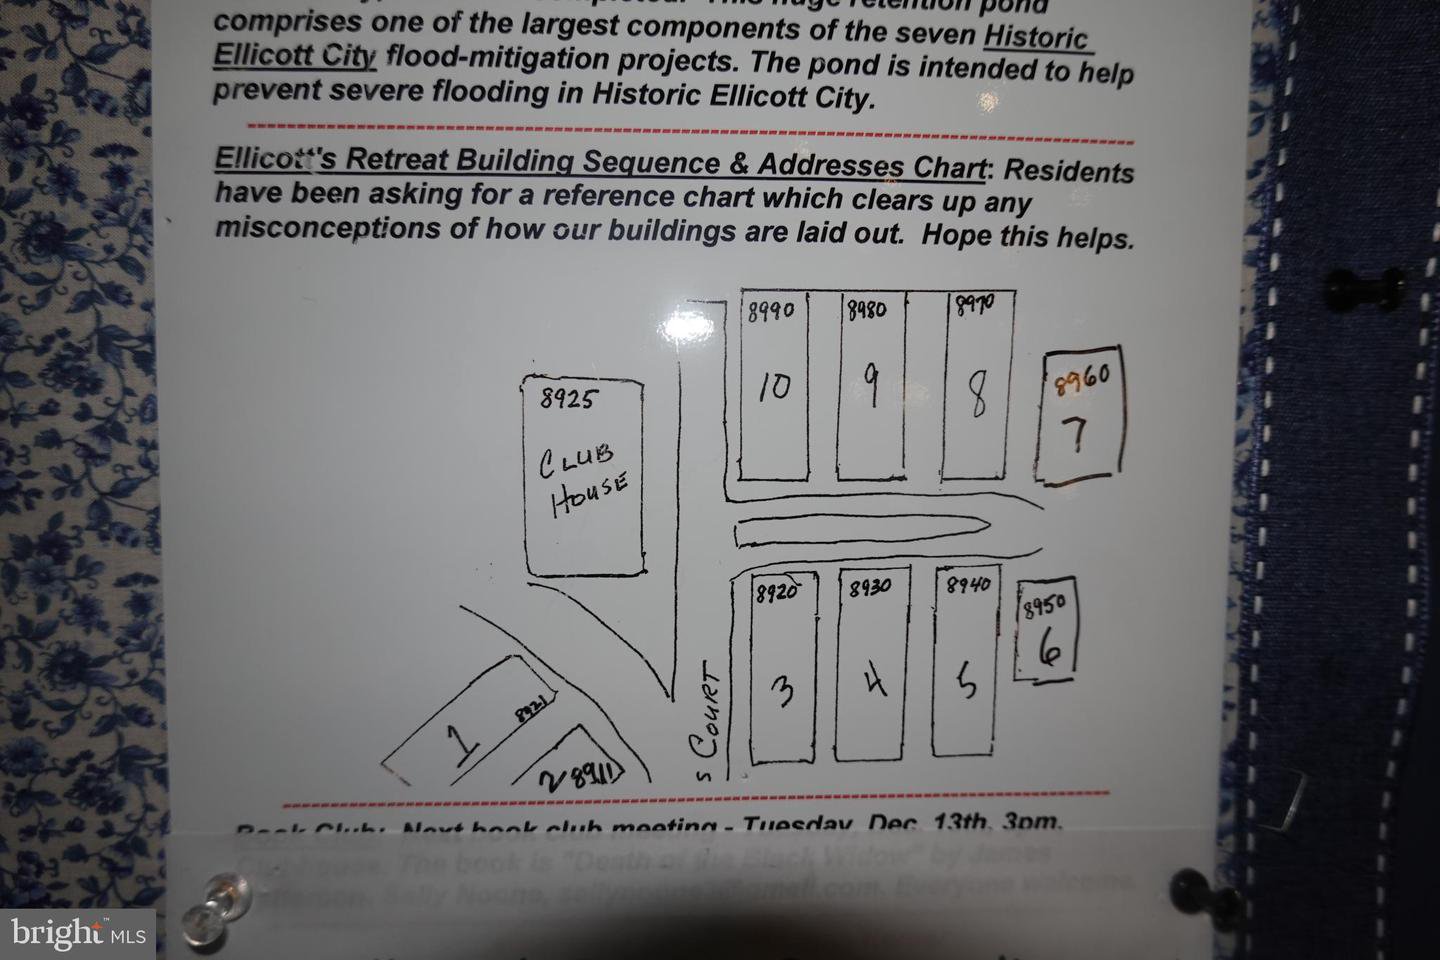 retention pond
comprises one of the largest components of the seven Historic
Ellicott City flood-mitigation projects. The pond is intended to help
prevent severe flooding in Historic Ellicott City.
Ellicott's Retreat Building Sequence & Addresses Chart: Residents
have been asking for a reference chart which clears up any
misconceptions of how our buildings are laid out. Hope this helps.
8990 8980 8970
10 9 8
8960
7
8925
CLUB
HOUSE
8920 8930 8940
3 4 5
8950
6
s COURT
1 8921
2 8911
Book Club: Next book club meeting - Tuesday, Dec. 13th, 3pm.
Clubhouse. The book is "Death of the Black Widow" by James
bright MLS